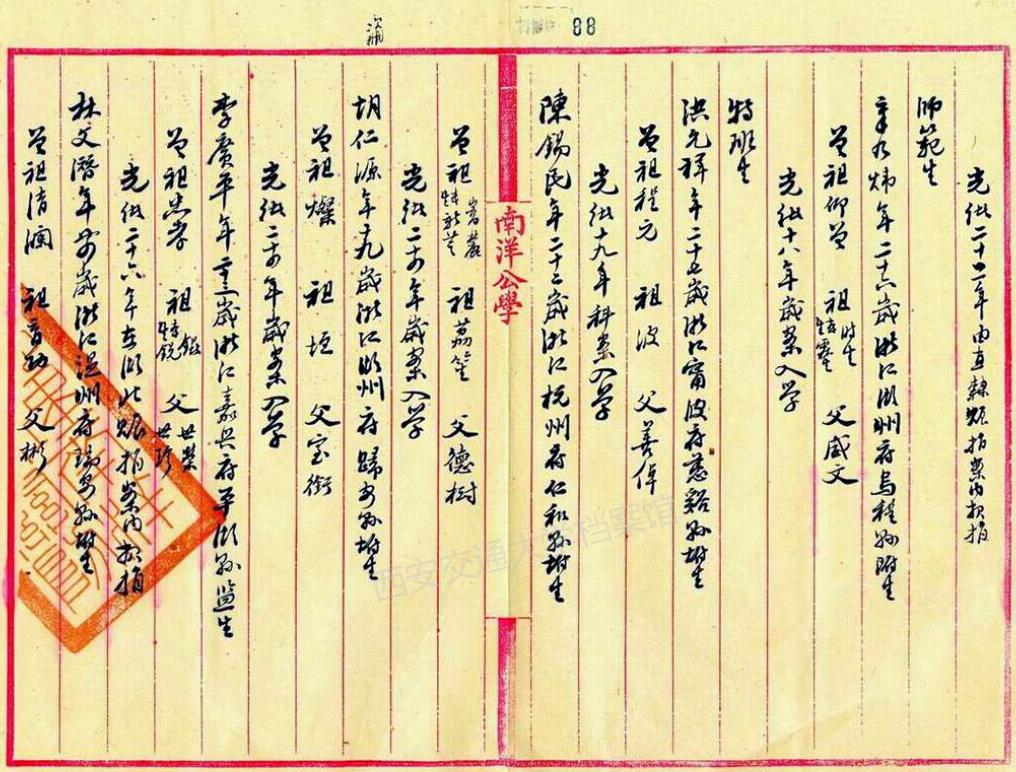 88
光緒二十二年由直隸賑捐案內報捐
師範生
章乃煒年二十六歲浙江湖州府烏程縣附生
曾祖仰曾 祖 父盛文
光緒十八年歲案入學
特班生
洪允祥年二十七歲浙江甯波府慈谿縣附生
曾祖程元 祖波 父善倬
光緒十九年科案入學
陳錫民年二十二歲浙江杭州府仁和縣附生
南洋公學
曾祖 祖荔笙 父德樹
光緒二十年歲案入學
胡仁源年十九歲浙江湖州府歸安縣附生
曾祖燦 祖垣 父寶銜
光緒二十年歲案入學
李廣平年二十三歲浙江嘉興府平湖縣監生
曾祖忠孝 祖銳 父世榮 世珍
光緒二十六年在湖北賑捐案內報捐
林文潛年歲浙江溫州府瑞安縣附生
曾祖清瀾 祖 父彬
西安交通大學档案馆